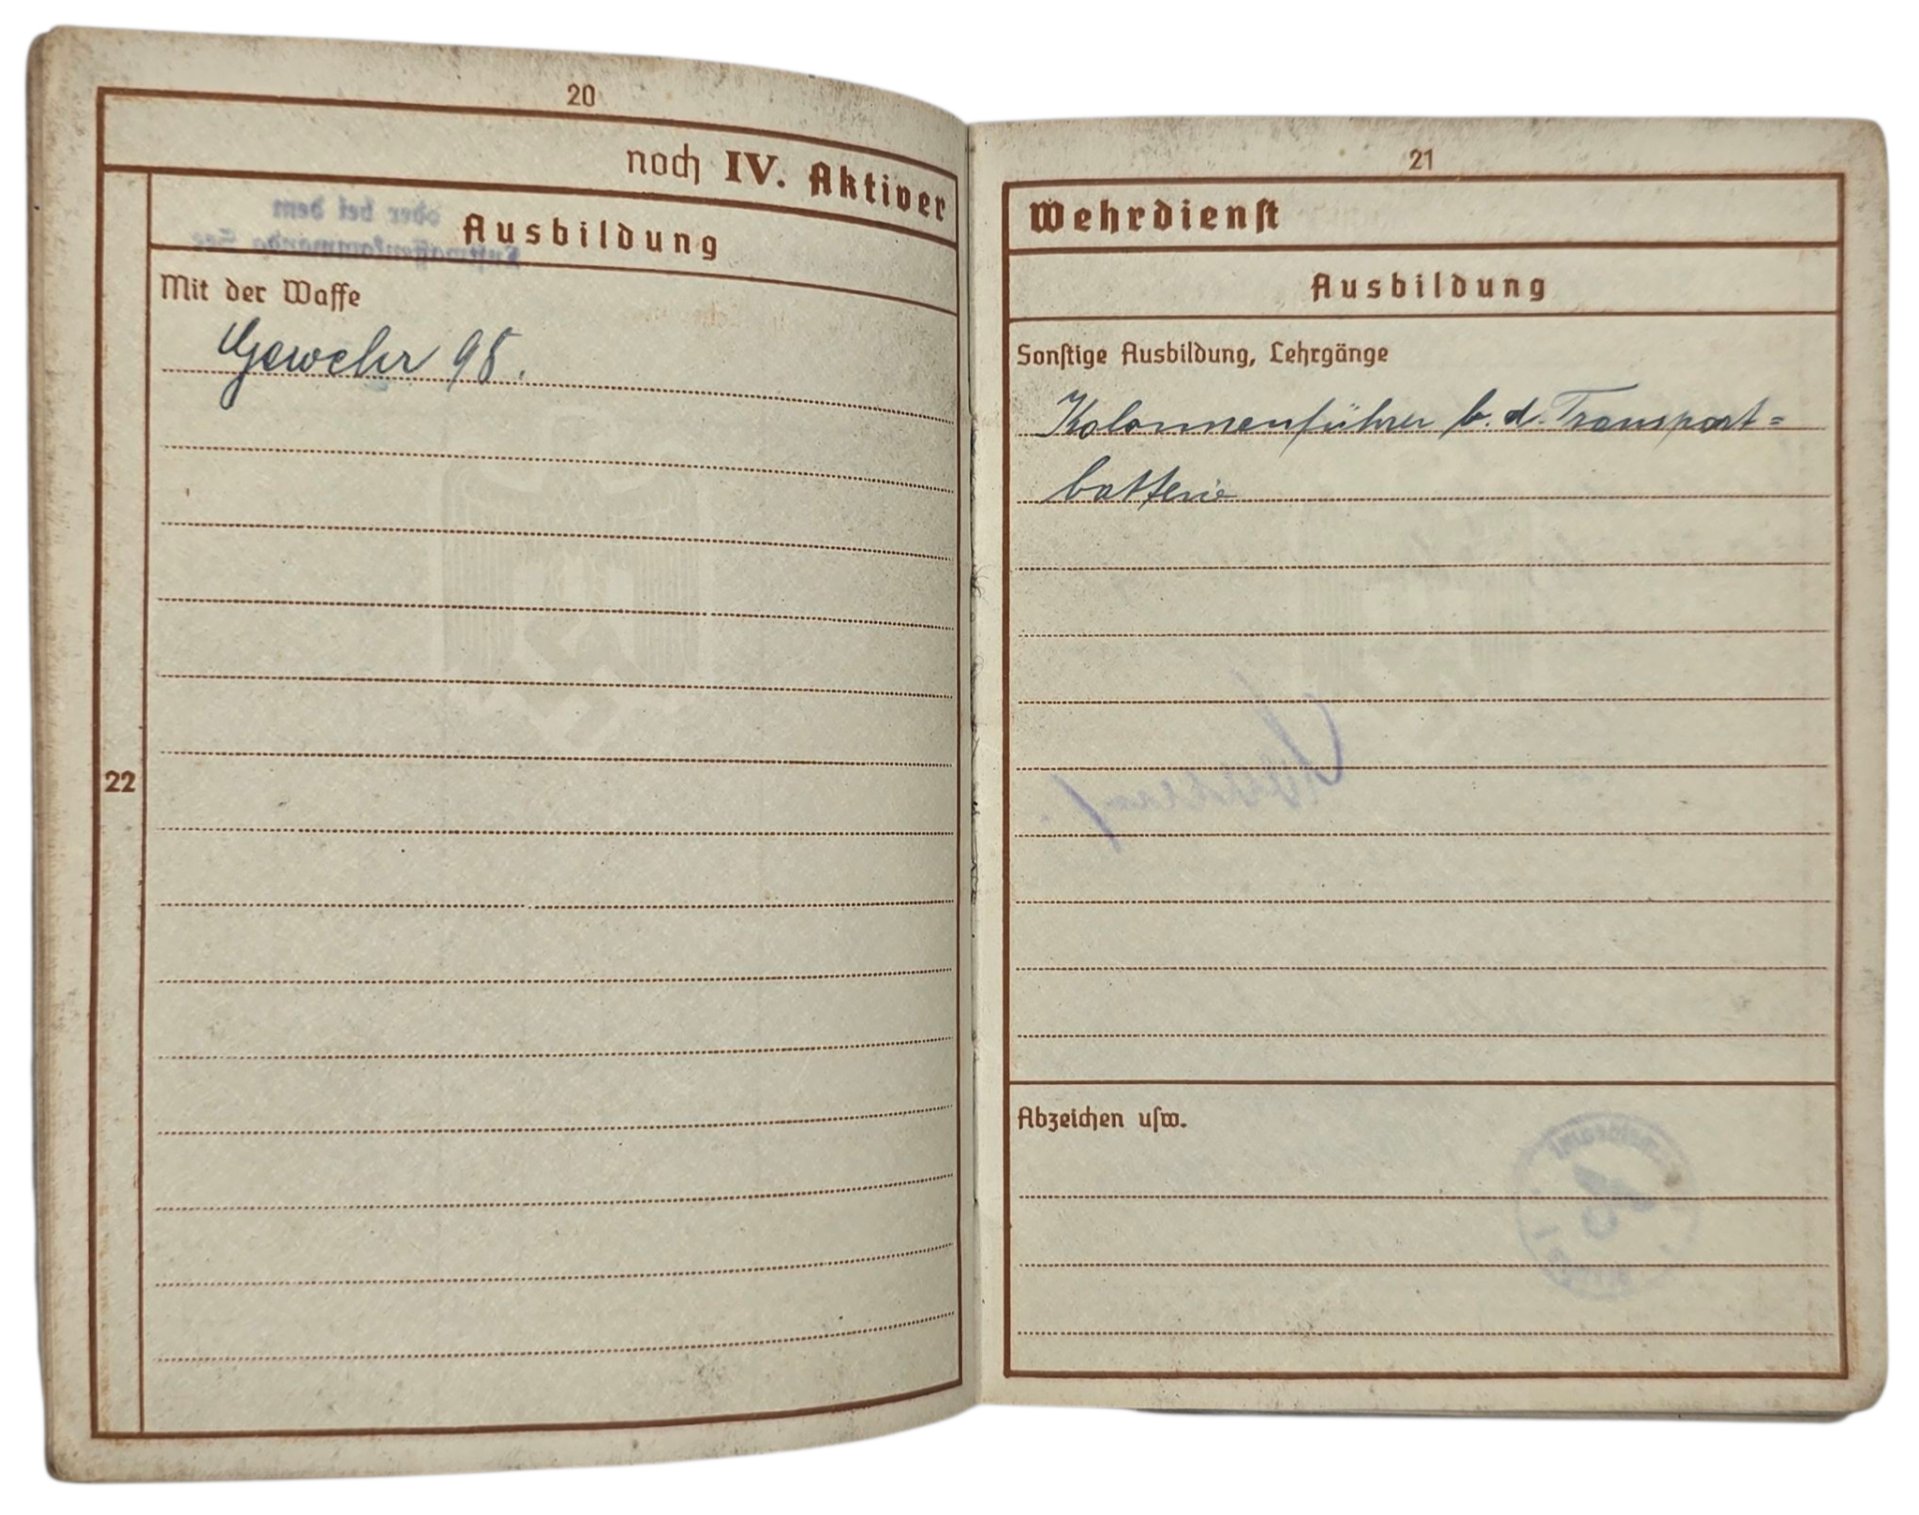 20
noch IV. Aktiver
Ausbildung
Mit der Waffe
Gewehr 98.
22
21
Wehrdienſt
Ausbildung
Sonſtige Ausbildung, Lehrgänge
Kolonnenführer b. d. Transport=
batterie
Abzeichen uſw.